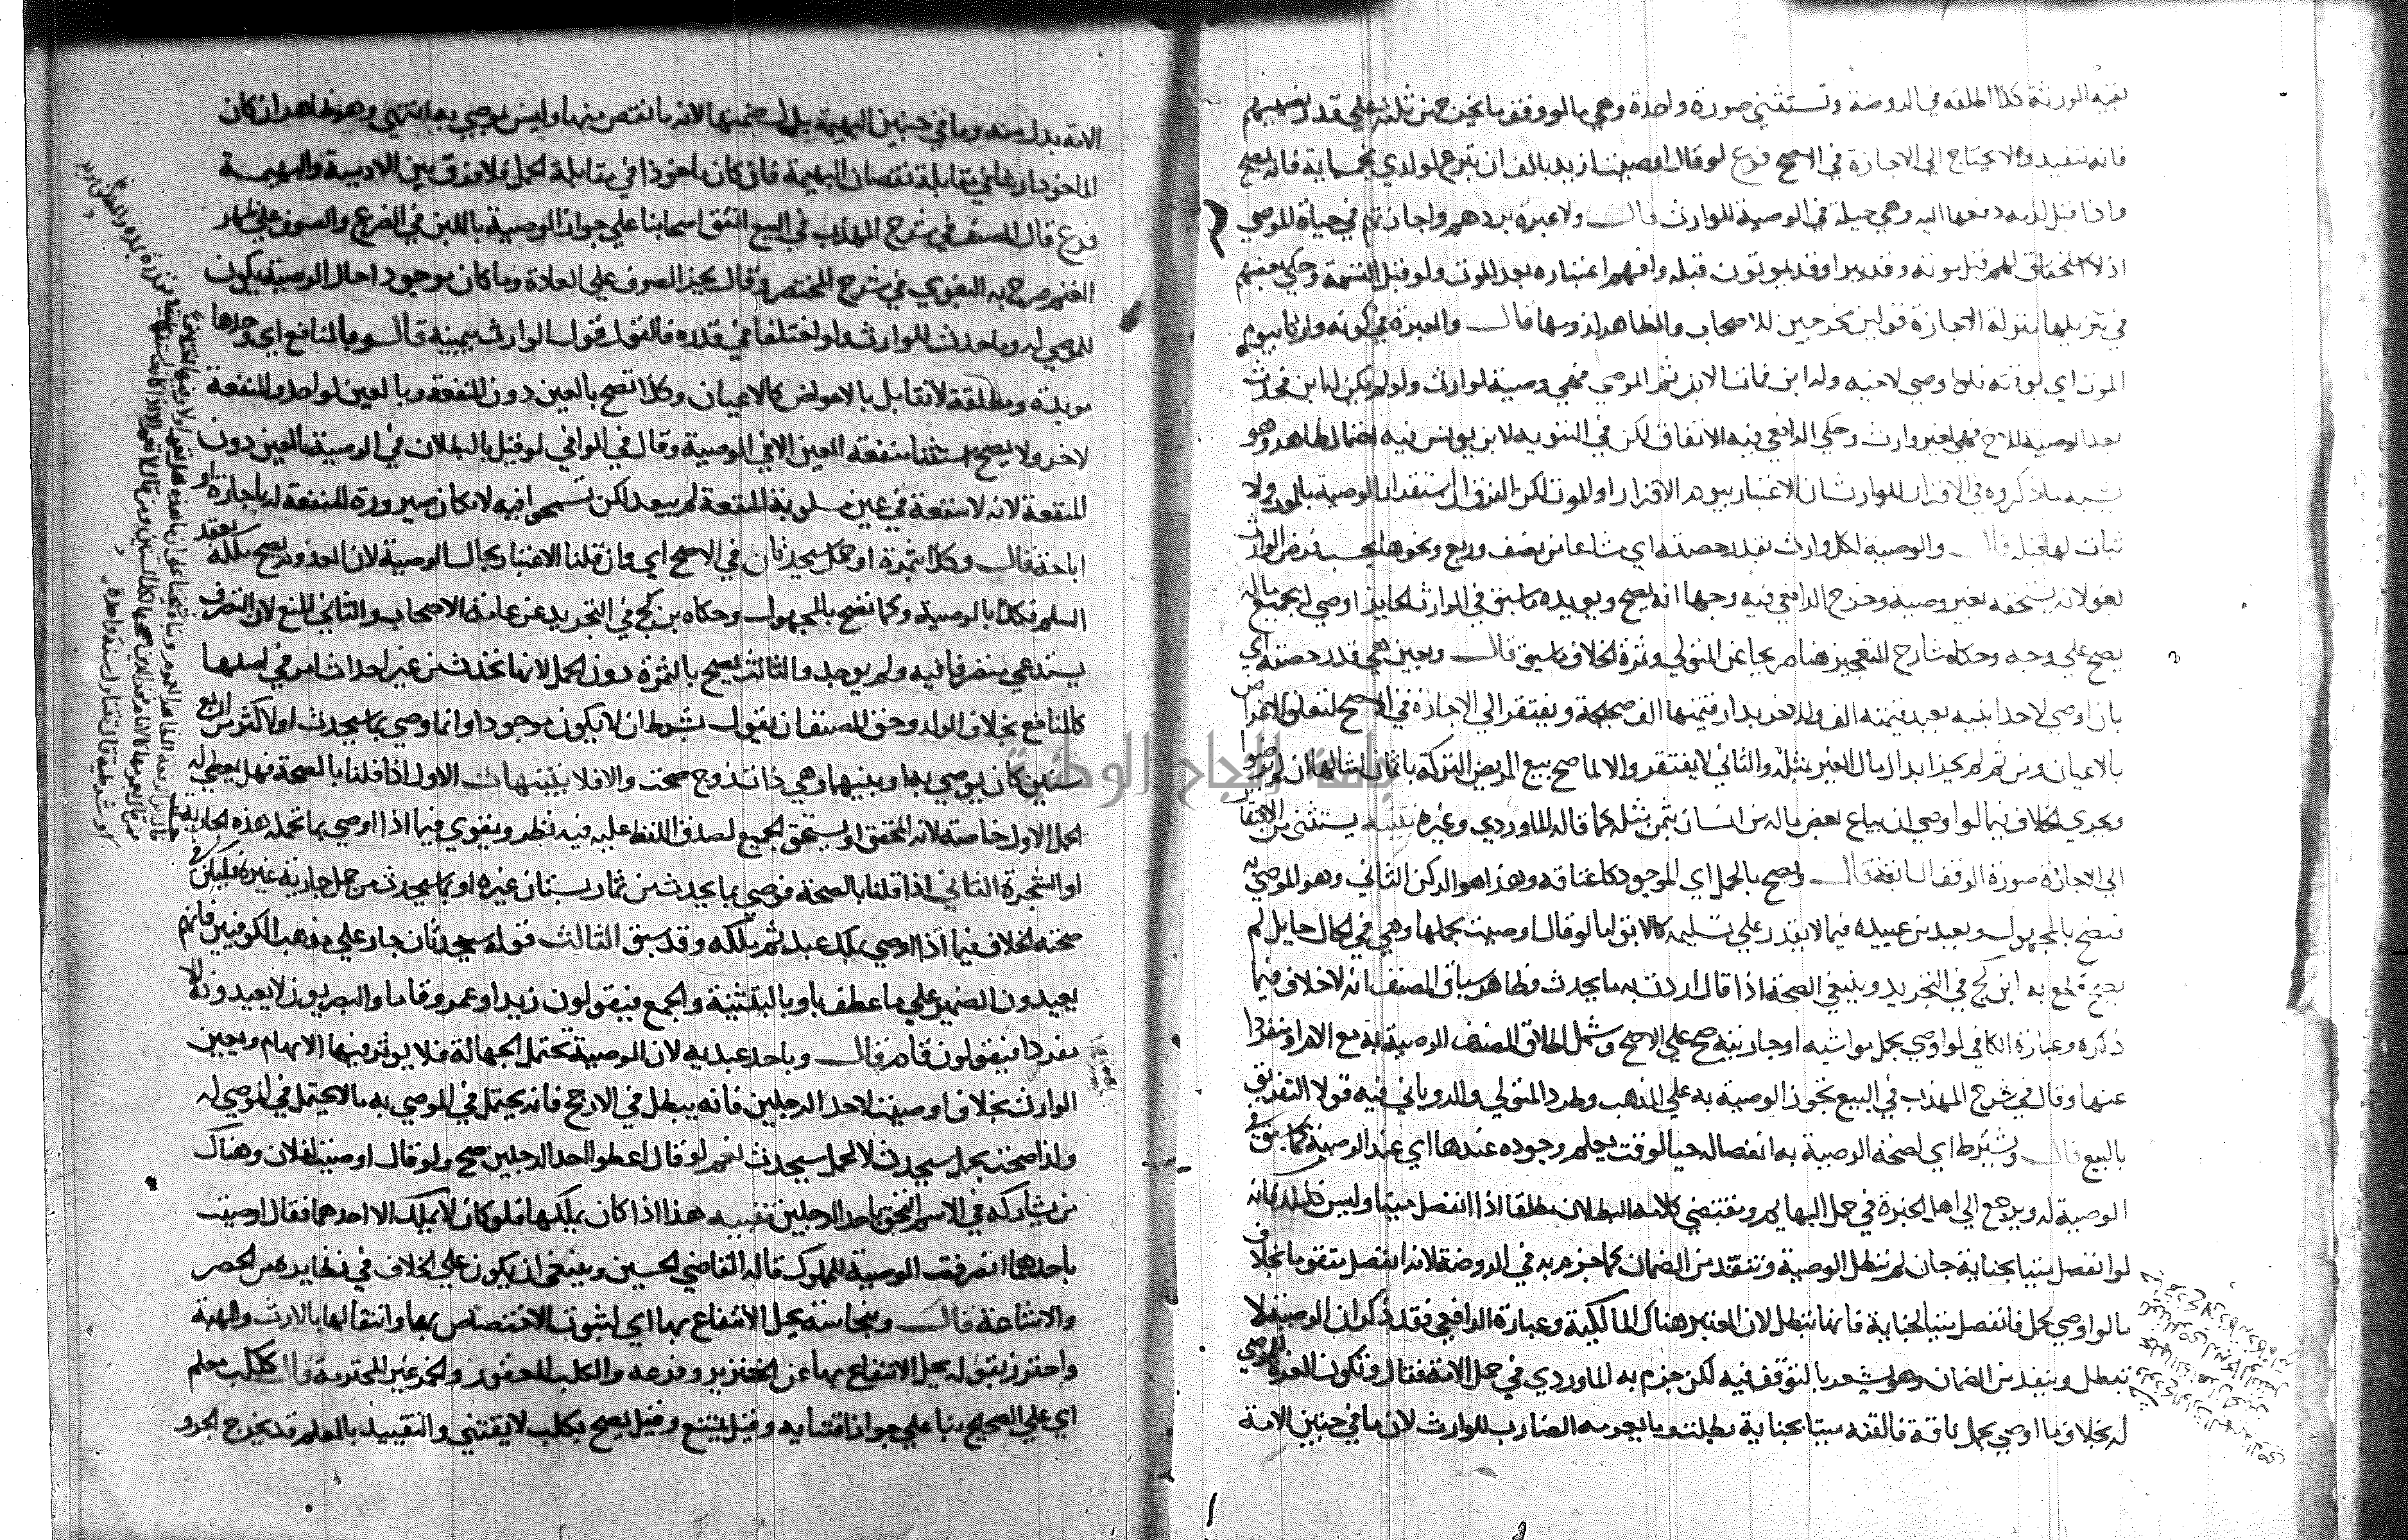 بقية الورثة كذا اطلقه في الروضة وتستثنى صورة واحدة وهي ما لو وقف ما يخرج من ثلثه على قدر نصيبهم
فانه ينفذ ولا يحتاج الى الاجازة في الاصح فرع لو قال اوصيت لزيد بالف ان تبرع لولدي بخمسماية فانه يصح
واذا قبل لزمه دفعها اليه وهي حيلة في الوصية للوارث قال ولا عبرة بردهم واجازتهم في حياة الموصي
اذ لا استحقاق لهم قبل موته وقد يبرا وقد يموتون قبله وافهم اعتباره بعد الموت ولو قبل القسمة وحكى بعضهم
في تنزيلها منزلة الاجازة قولين مخرجين للاصحاب والظاهر لزومها قال والعبرة في كونه وارثا بيوم
الموت اي لو قته فلو اوصى لاخيه وله ابن فمات الابن ثم الموصي فهي وصية لوارث ولو لم يكن له ابن فحدث
بعد الوصية للاخ فهي لغير وارث وحكى الرافعي فيه الاتفاق لكن في التنويه لابن يونس فيه احتمال ظاهر وهو
شبيه بما ذكروه في الاقرار للوارث ان الاعتبار بيوم الاقرار او الموت لكن الفرق استقرار الوصية بالموت ولا
ثبات لها قبله قال والوصية لكل وارث بقدر حصته اي شايعا من نصف وربع ونحوها بحسب فرض الوارث
لغو لانه يستحقه بغير وصية وخرج الرافعي فيه وجها انه يصح ويويده ما سبق في الوارث الحايز اوصى له بجميع ماله
يصح على وجه وحكاه شارح التعجيز هنا صريحا عن المتولي وثمرة الخلاف ما سبق قال وبعين هي قدر حصته اي
بان اوصى لاحد ابنيه بعبد قيمته الف وللاخر بدار قيمتها الف صحيحة ويفتقر الى الاجازة في الاصح لتعلق الاغراض
بالاعيان ومن ثم لم يجز ابدال مال الغير بمثله والثاني لا يفتقر والا لما صح بيع المريض التركة باثمان امثالها ان لم يرضوا
ويجري الخلاف فيما لو اوصى ان يباع بعض ماله من انسان بثمن مثله كما قاله الماوردي وغيره تنبيه يستثنى من الافتقار
الى الاجازة صورة الوقف السابقة قال ويصح بالحمل اي الموجود كاعتاقه وهذا هو الركن الثاني وهو الموصى به
فتصح بالمجهول وبعبد من عبيده فيما لا يقدر على تسليمه كالابق اما لو قال اوصيت بحملها وهي في الحال حايل لم
يصح قطع به ابن كج في التجريد وينبغي الصحة اذا قال اردت به ما يحدث وظاهر سياق المصنف انه لا خلاف فيما
ذكره وعبارة الكافي لو اوصى بحمل مواشيه او جاريته صح على الاصح وشمل اطلاق المصنف الوصية به مع الام او منفردا
عنها وقال في شرح المهذب في البيع تجوز الوصية به على المذهب وطرد المتولي والروياني فيه قولا التفريق
بالبيع قال ويشترط اي لصحة الوصية به انفصاله حيا لوقت يعلم وجوده عندها اي عند الوصية كما سبق في
الوصية له ويرجع الى اهل الخبرة في حمل البهايم ومقتضى كلامه البطلان مطلقا اذا انفصل ميتا وليس كذلك فانه
لو انفصل ميتا بجناية جان لم تبطل الوصية وتنفذ من الضمان كما جزم به في الروضة لانه انفصل متقوما بخلاف
ما لو اوصى لحمل فانفصل ميتا بجناية فانها تبطل لان المعتبر هناك المالكية وعبارة الرافعي فقد ذكر ان الوصية لا
تبطل وينفذ من الضمان وهو يشعر بالتوقف فيه لكن جزم به الماوردي في حمل الامة فقال وتكون الغرة للموصى
له بخلاف ما اوصى بحمل ناقة فالقته ميتا بجناية بطلت وما يغرمه الضارب للوارث لان ما في جنين الامة
الامة بدل منه وما في جنين البهيمة بدل بعضها لانه ما نقص منها وليس الموصى به انتهى وهو ظاهر ان كان
الماخوذ ارشا في مقابلة نقصان البهيمة فان كان ماخوذا في مقابلة الحمل فلا فرق بين الادمية والبهيمة
فرع قال المصنف في شرح المهذب في البيع اتفق اصحابنا على جواز الوصية باللبن في الضرع والصوف على ظهر
الغنم صرح به البغوي في شرح المختصر وقال يجز الصوف على العادة وما كان موجودا حال الوصية يكون
للموصى له وما حدث للوارث ولو اختلفا في قدره فالقول قول الوارث بيمينه قال وبالمنافع اي وحدها
موبدة ومطلقة لانها تقابل بالاعواض كالاعيان وكذا تصح بالعين دون المنفعة وبالعين لواحد والمنفعة
لاخر ولا يصح استثنا منفعة العين الا في الوصية وقال في الوافي لو قيل بالبطلان في الوصية بالعين دون
المنفعة لانه لا منفعة في عين مسلوبة المنفعة لم يبعد لكن تسمحوا فيه لامكان صيرورة المنفعة له باجازة او
اباحة قال وكذا بثمرة او حمل سيحدثان في الاصح اي وان قلنا الاعتبار بحال الوصية لان المعدوم يصح ملكه بعقد
السلم فكذا بالوصية وكما تصح بالمجهول وحكاه بن كج في التجريد عن عامة الاصحاب والثاني المنع لان التصرف
يستدعي متصرفا فيه ولم يوجد والثالث يصح بالثمرة دون الحمل لانها تحدث من غير احداث امر في اصلها
كالمنافع بخلاف الولد وحق المصنف ان يقول بشرط ان لا يكون موجودا وانما وصى بما سيحدث او لاكثر من اربع
سنين كان يوصي بها وبينهما وهي ذات زوج صحت والا فلا تنبيهات الاول اذا قلنا بالصحة فهل يعطى له
الحمل الاول خاصة لانه المحقق او يستحق الجميع لصدق اللفظ عليه فيه نظر ويقوى فيما اذا اوصى بما تحمله هذه الجارية
او الشجرة الثاني اذا قلنا بالصحة فوصى بما يحدث من ثمار بستان غيره او بما سيحدث من حمل جارية غيره فليكن
صحته الخلاف فيما اذا اوصى بملك عبد ثم ملكه وقد سبق الثالث قوله سيحدثان جار على مذهب الكوفيين فانهم
يعيدون الضمير على ما عطف باو بالتثنية والجمع فيقولون زيد او عمرو قاما والبصريون لا يعيدونه الا
مفردا فيقولون قام قال وباحد عبديه لان الوصية تحتمل الجهالة فلا يوثر فيها الابهام ويعين
الوارث بخلاف اوصيت لاحد الرجلين فانه يبطل في الارجح فانه يحتمل في الموصى به ما لا يحتمل في الموصى له
ولذا صحت بحمل سيحدث لا لحمل سيحدث نعم لو قال اعطوا احد الرجلين صح ولو قال اوصيت لفلان وهناك
من يشاركه في الاسم التحق باحد الرجلين تنبيه هذا اذا كان يملكها فلو كان لا يملك الا احدهما فقال اوصيت
باحدهما انصرفت الوصية للمملوك قاله القاضي الحسين وينبغي ان يكون على الخلاف في نظايره من الحصر
والاشاعة قال وبنجاسة يحل الانتفاع بها اي لثبوت الاختصاص بها وانتقالها بالارث والهبة
واحترز بقوله يحل الانتفاع بها عن الخنزير وفرعه والكلب العقور والخمر غير المحترمة قال ككلب معلم
اي على الصحيح بنا على جواز اقتنايه وقيل يمتنع وقيل يصح بكلب لا يقتنى والتقييد بالمعلم قد يخرج الجرو